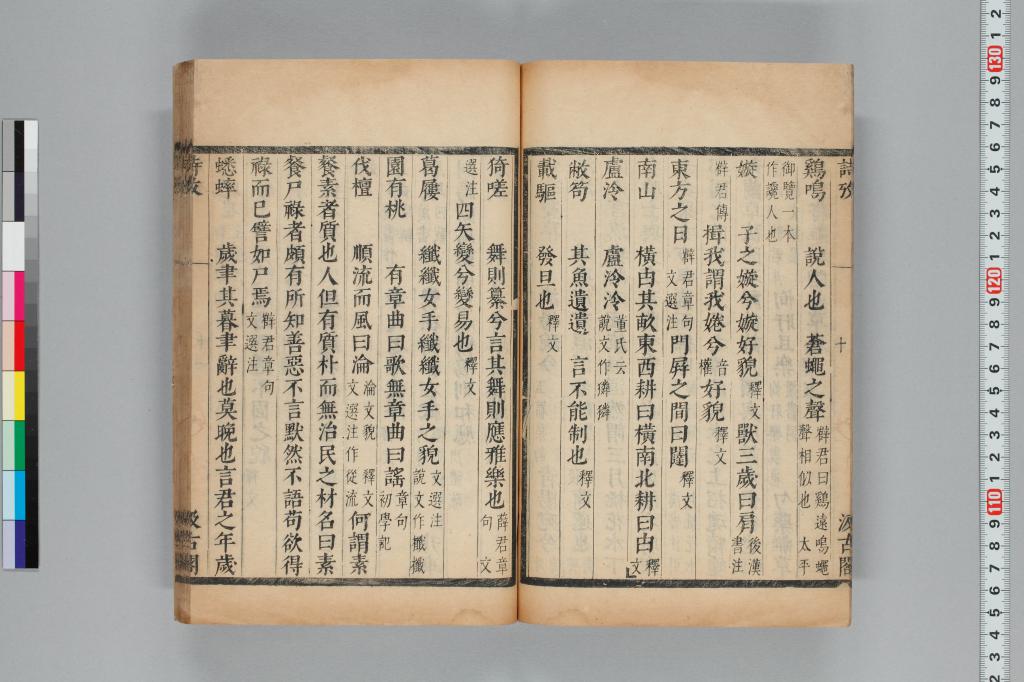 詩攷 十 汲古閣
鷄鳴 說人也 蒼蠅之聲 薛君曰鷄遠鳴蠅聲相似也 太平
御覽一本作讒人也
嫙 子之嫙兮嫙好貌 釋文 獸三歲曰肩 後漢書注
薛君傳 揖我謂我婘兮 音權 好貌 釋文
東方之日 薛君章句文選注 門屏之間曰闥 釋文
南山 橫由其畝東西耕曰橫南北耕曰由 釋文
盧泠 盧泠泠 董氏云說文作獜獜
敝笱 其魚遺遺 言不能制也
載驅 發旦也 釋文
猗嗟 舞則纂兮言其舞則應雅樂也 薛君章句 文
選注 四矢變兮變易也 釋文
葛屨 纖纖女手纖纖女手之貌 文選注說文作攕攕
園有桃 有章曲曰歌無章曲曰謠 章句初學記
伐檀 順流而風曰淪 淪文貌 釋文文選注作從流 何謂素
餐素者質也人但有質朴而無治民之材名曰素
餐尸祿者頗有所知善惡不言默然不語苟欲得
祿而已譬如尸焉 薛君章句文選注
蟋蟀 歲聿其暮聿辭也莫晚也言君之年歲
詩攷 汲古閣
130
120
110